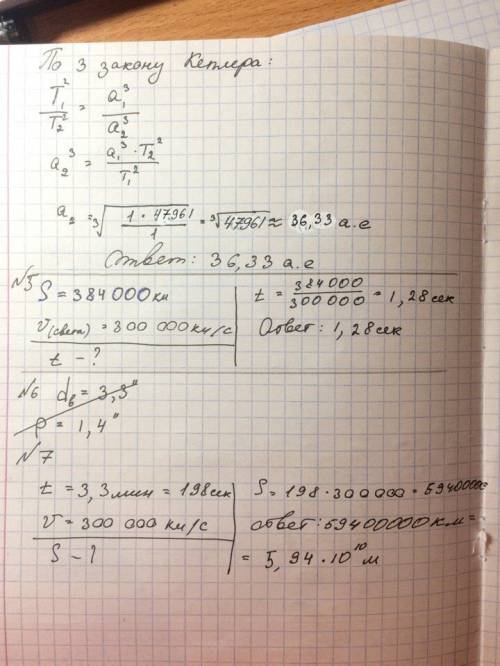 По 3 закону Кеплера:
T₁²/T₂² = a₁³/a₂³
a₂³ = a₁³ · T₂²/T₁²
a₂ = ³√(1 · 47961/1) = ³√47961 ≈ 36,33 а.е
Ответ: 36,33 а.е
№5
S = 384 000 км
v(света) = 300 000 км/с
t - ?
t = 384000/300 000 = 1,28 сек
Ответ: 1,28 сек
№6 dв = 3,3"
p = 1,4"
№7
t = 3,3 мин = 198 сек
v = 300 000 км/с
S - ?
S = 198 · 300000 = 59400000
ответ: 59400000 км =
= 5,94 · 10¹⁰ м